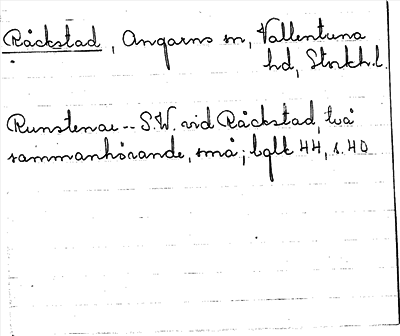 Råckstad, Angarns sn, Vallentuna
hd, Stockh.l.
Runstenar -- S.W. vid Råckstad, två
sammanhörande, små; bglk 44, s. 40